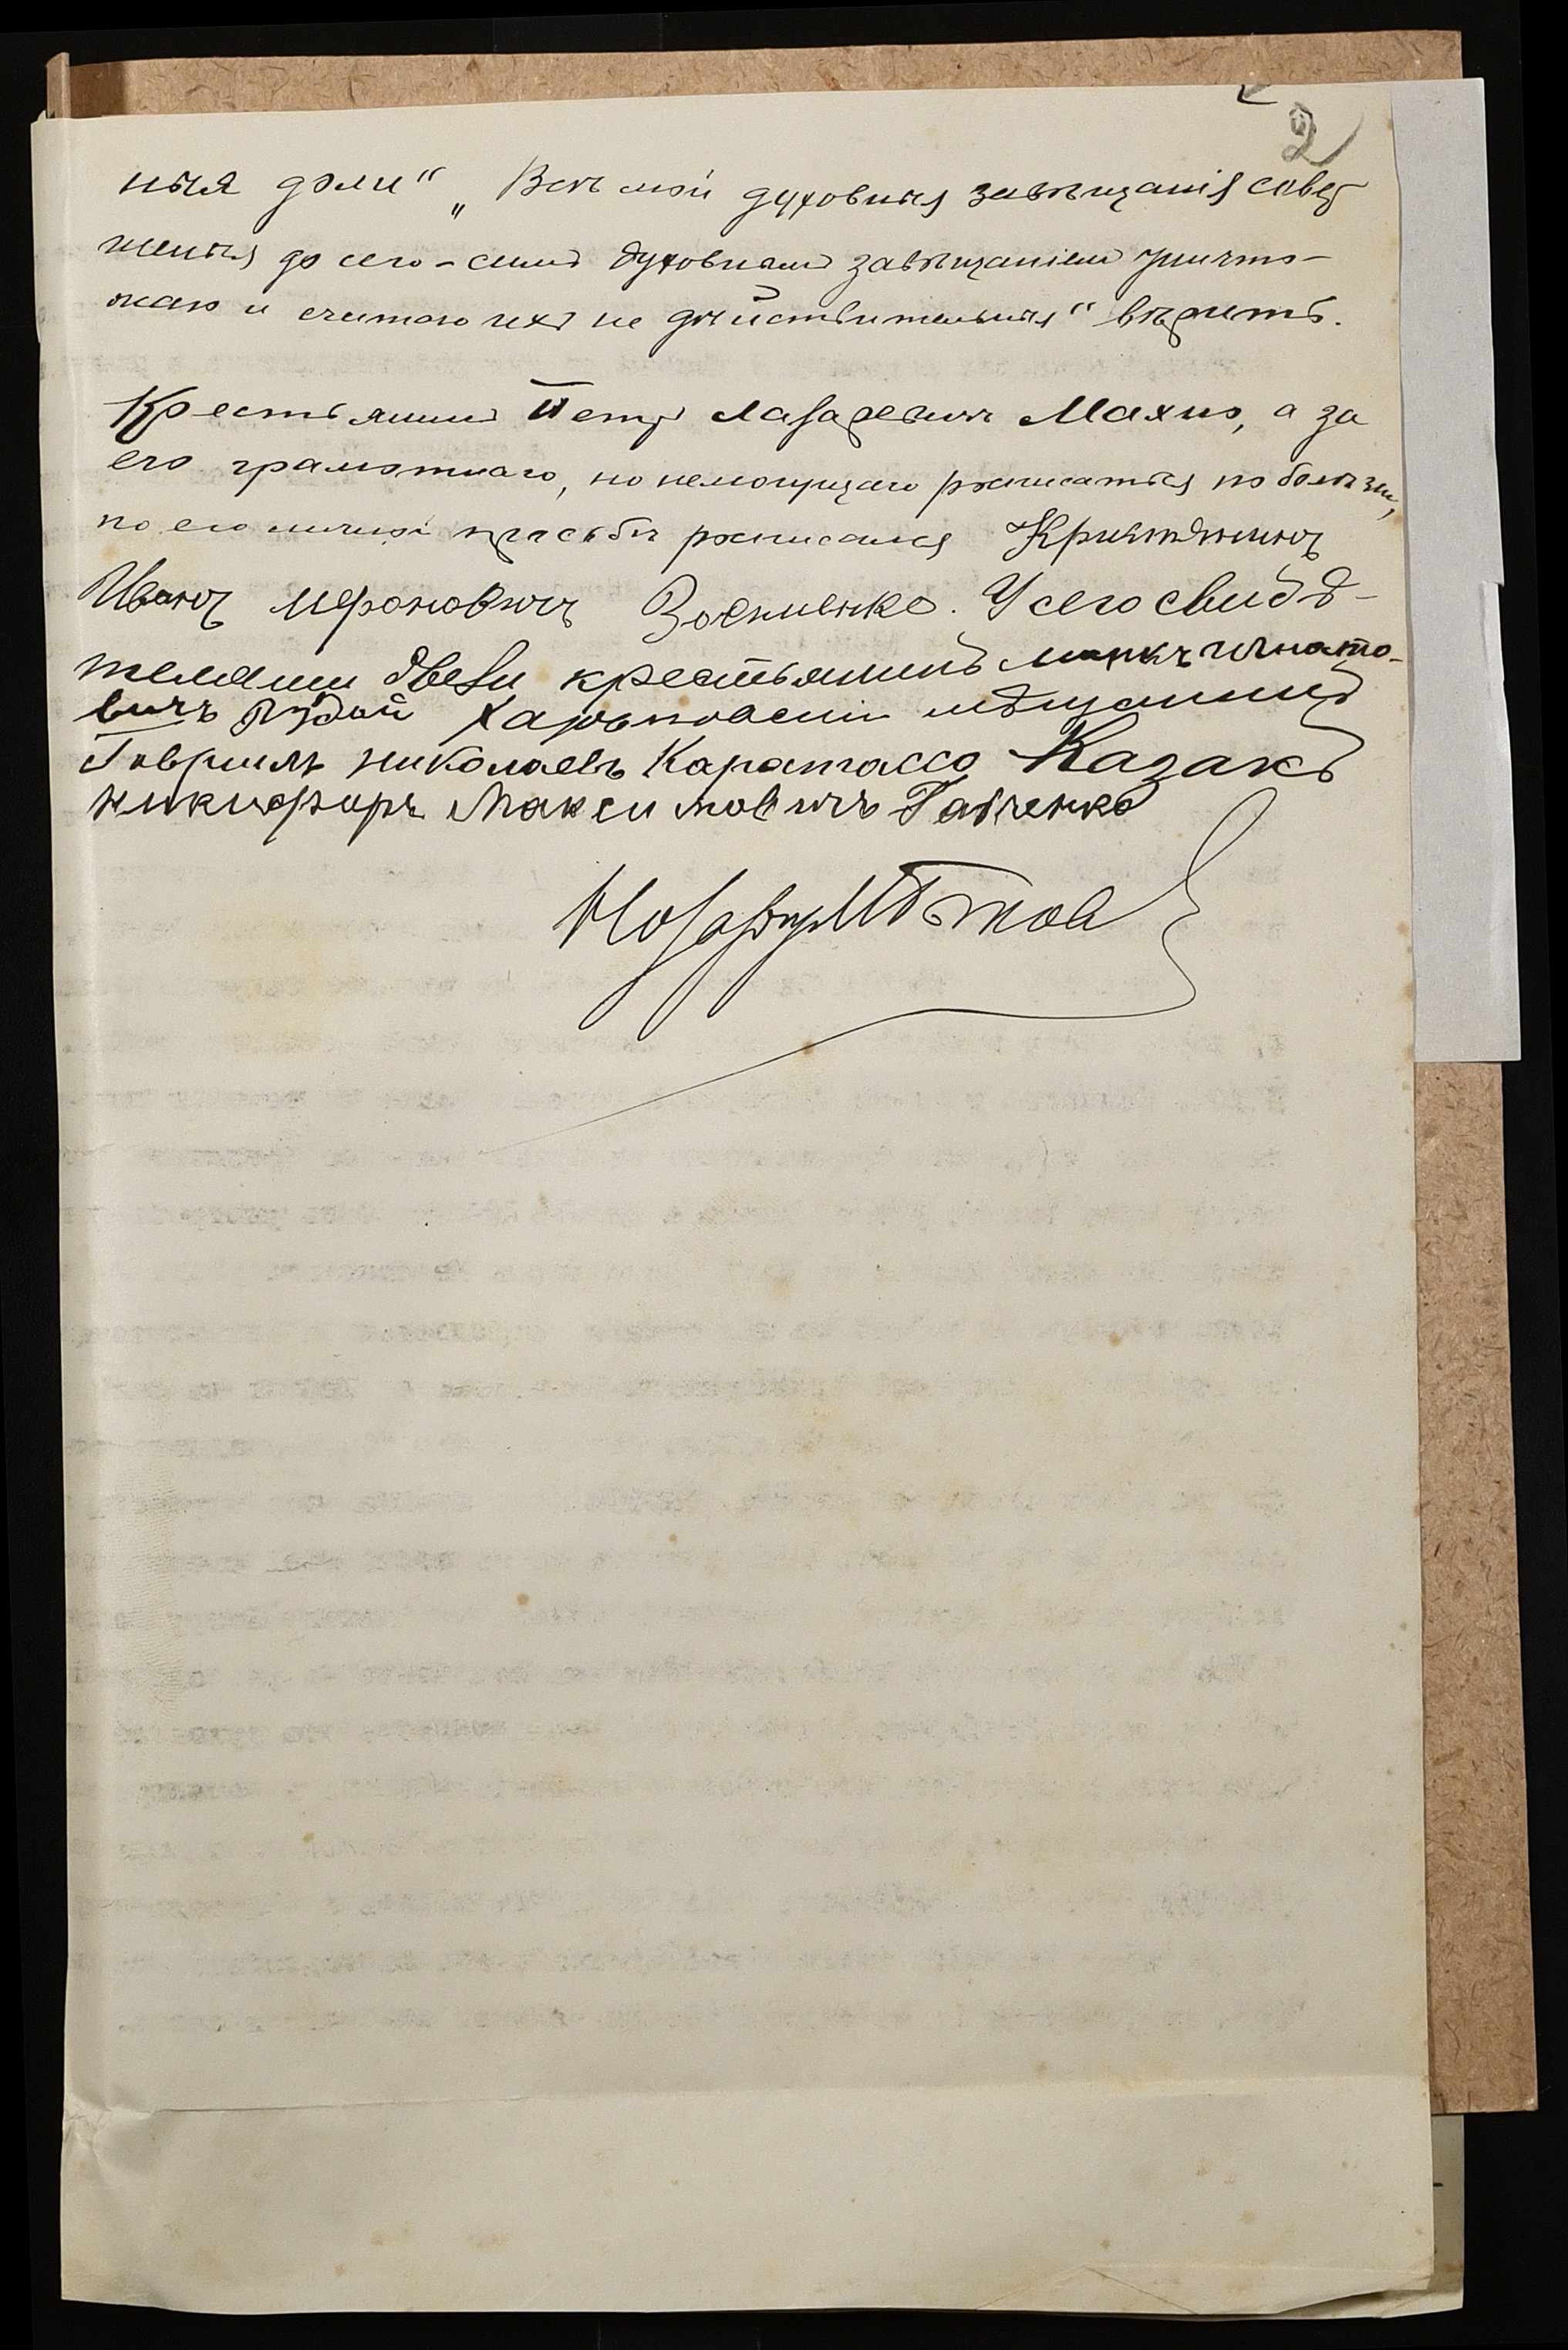 2
ныя доли“ „Всѣ мои духовныя завѣщанія совер
шеныя до сего - симъ духовнымъ завѣщаніемъ уничто-
жаю и считаю ихъ не дѣйствительныя“ вѣрить.
Крестьянинъ Петръ Лазаревичъ Махно, а за
его грамотнаго, но немогущаго росписаться по болѣзни,
по его личной просьбѣ росписался Криштянинъ
Иванъ Мероновичъ У сего свидѣ-
телями были крестьянинъ Маркъ Игнато-
вичъ Рудой Харьковскій мѣщанинъ
Гавриилъ Николаевъ Каратассо Казакъ
Никифоръ Максимовичъ
Нотаріусъ